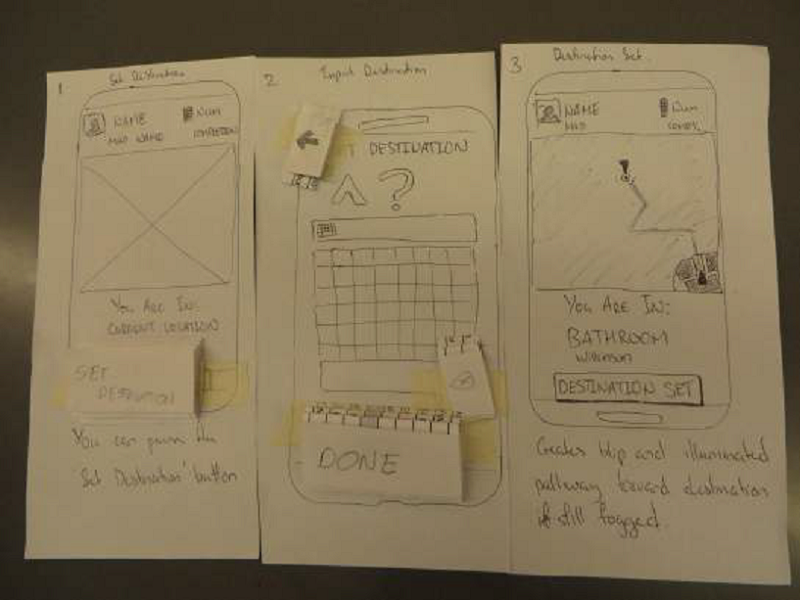 1. Set Destination
NAME
MAP NAME
NUM
COMPLETION
YOU ARE IN:
CURRENT LOCATION
SET
DESTINATION
You can push the
'Set Destination' button
2 Input Destination
T DESTINATION
?
DONE
3 Destination Set.
NAME
MAP
NUM
!
YOU ARE IN:
BATHROOM
DESTINATION SET
Creates blip and illuminated
pathway toward destination
if still fogged.